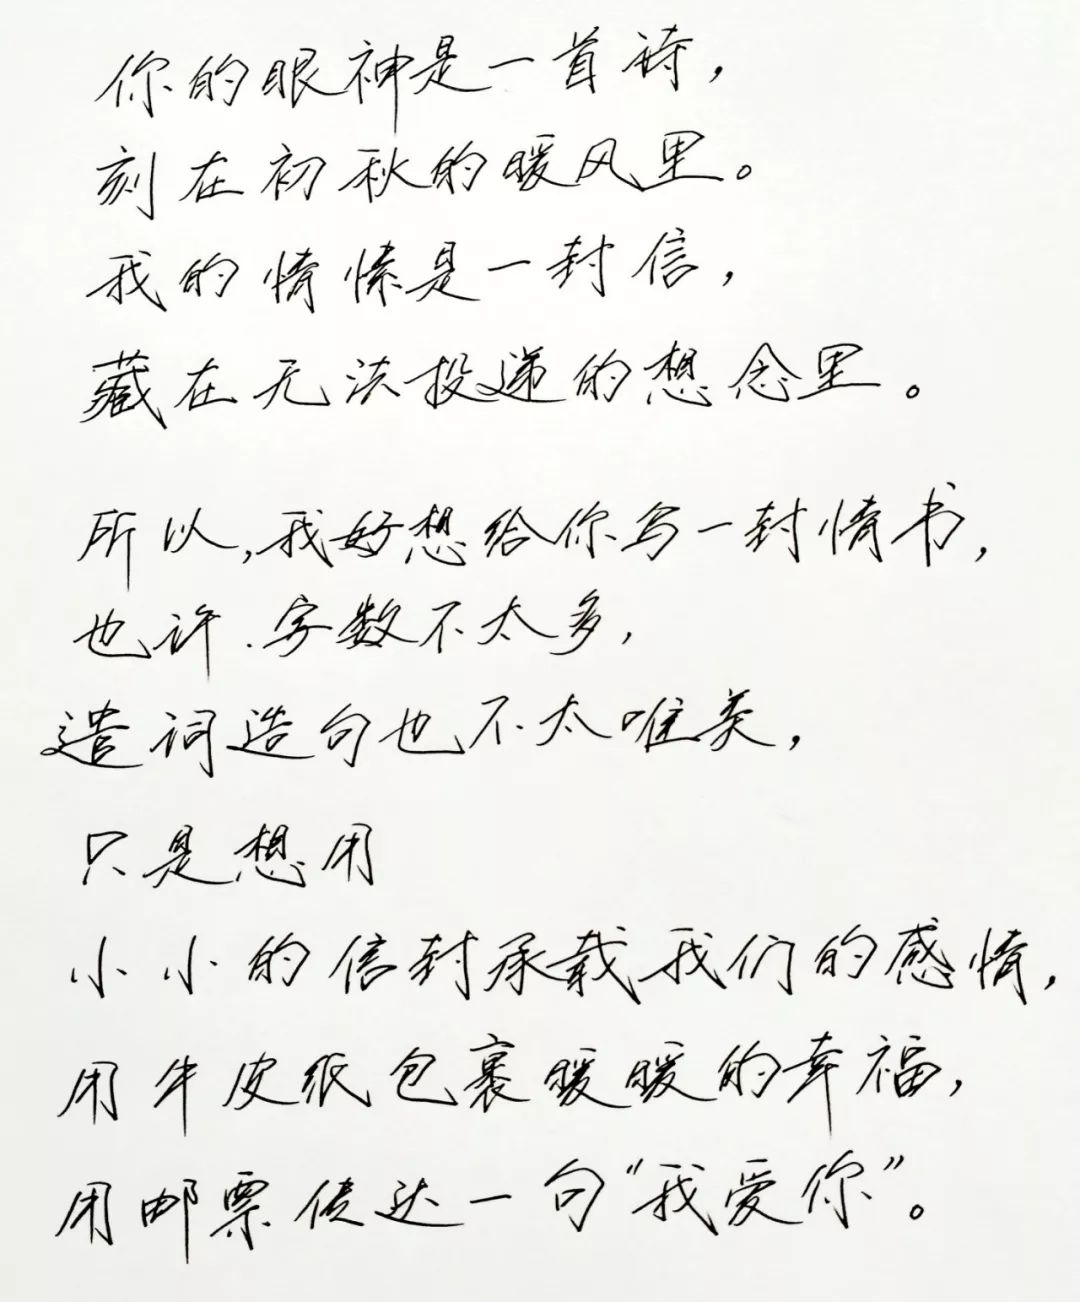 你的眼神是一首诗，
刻在初秋的暖风里。
我的情愫是一封信，
藏在无法投递的想念里。
所以，我好想给你写一封情书，
也许.字数不太多，
遣词造句也不太唯美，
只是想用
小小的信封承载我们的感情，
用牛皮纸包裹暖暖的幸福，
用邮票传达一句“我爱你”。